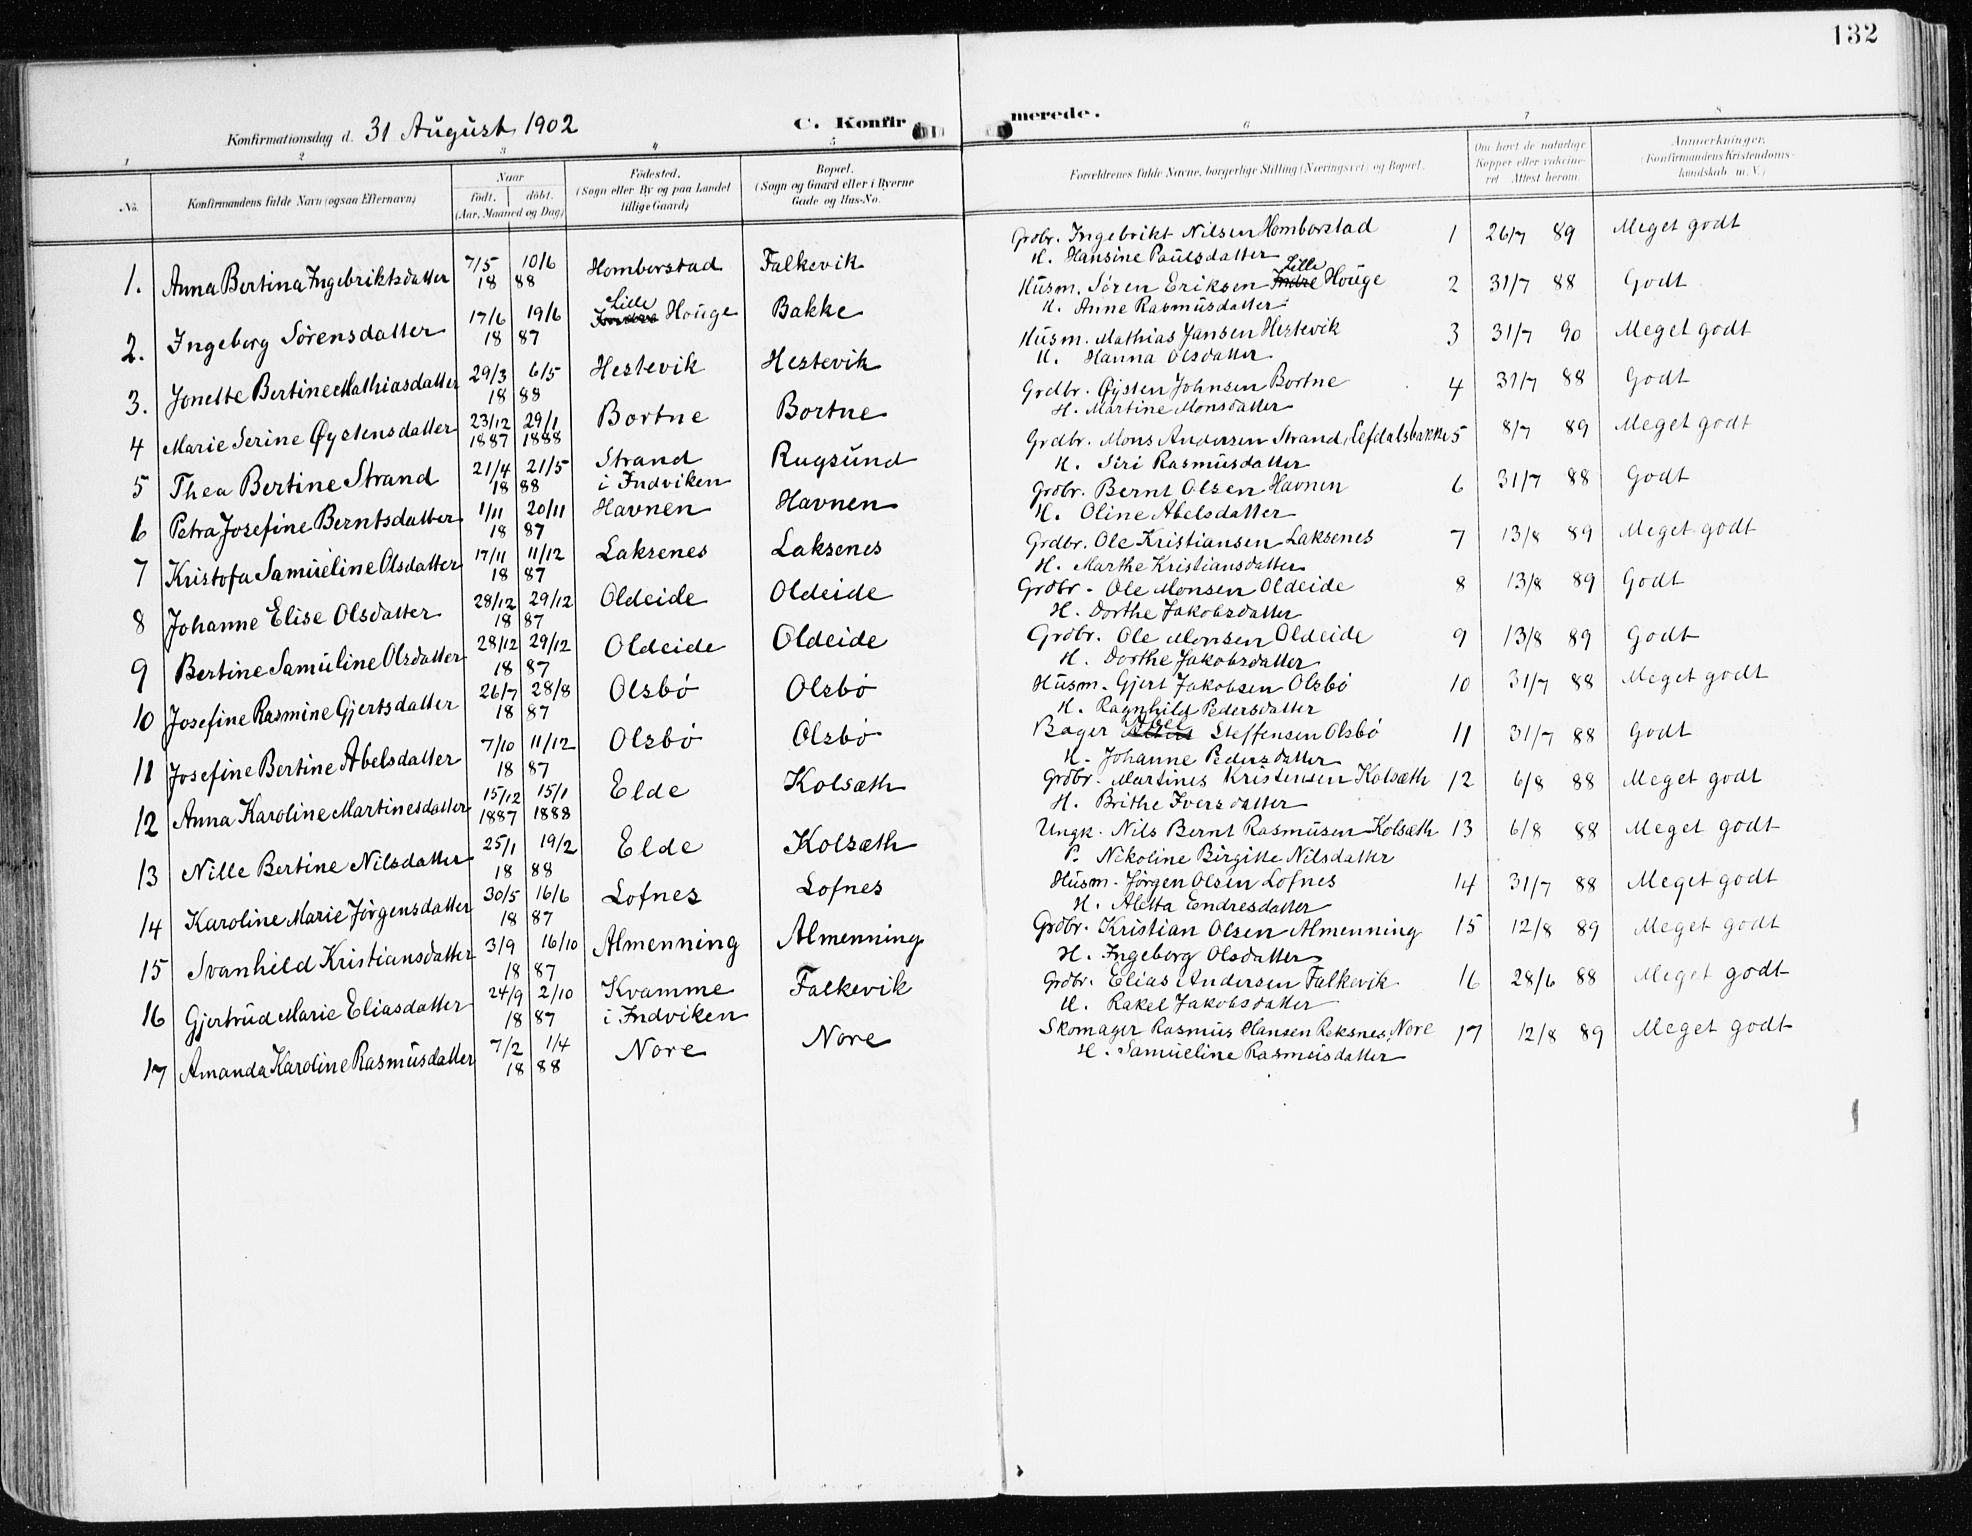 132
Konfirmationsdag d. 31 August 1902
C. Konfirmerede.
1 2 3 4 5 6 7 8
No.
Konfirmandens fulde Navn (ogsaa Efternavn)
Naar
født. döbt.
(Aar, Maaned og Dag)
Födested.
(Sogn eller By og paa Landet
tillige Gaard)
Bopæl.
(Sogn og Gaard eller i Byerne
Gade og Hus-No.
Forældrenes fulde Navne, borgerlige Stilling (Næringsvei) og Bopæl.
Om havt de naturlige
Kopper eller vakcine-
ret Attest herom.
Anmerkninger.
(Konfirmandens Kristendoms-
kundskab m.V.)
1. Anna Bertina Ingebriktsdatter 7/5 10/6 Homborstad Falkevik Grdbr. Ingebrikt Nilsen Homborstad 1 26/7 89 Meget godt
18 88 H. Hansine Paulsdatter
2. Ingeborg Sørensdatter 17/6 19/6 Indre Lille Houge Bakke Husm. Søren Eriksen Indre Lille Houge 2 31/7 88 Godt
18 87 H. Anne Rasmusdatter
3. Jonette Bertine Mathiasdatter 29/3 6/5 Hestevik Hestevik Husm. Mathias Jansen Hestevik 3 31/7 90 Meget godt
18 88 H. Hanna Olsdatter
4 Marie Serine Øystensdatter 23/12 29/1 Bortne Bortne Grdbr. Øysten Johnsen Bortne 4 31/7 88 Godt
1887 1888 H. Martine Monsdatter
5 Thea Bertine Strand 21/4 21/5 Strand Rugsund Grdbr. Mons Andersen Strand, Lefdalsbakke 5 8/7 89 Meget godt
18 88 i Indviken H. Siri Rasmusdatter
6 Petra Josefine Berntsdatter 1/11 20/11 Havnen Havnen Grdbr. Bernt Olsen Havnen 6 31/7 88 Godt
18 87 H. Oline Abelsdatter
7 Kristofa Samueline Olsdatter 17/11 11/12 Laksenes Laksenes Grdbr. Ole Kristiansen Laksenes 7 13/8 89 Meget godt
18 87 H. Marthe Kristiansdatter
8 Johanne Elise Olsdatter 28/12 29/12 Oldeide Oldeide Grdbr. Ole Monsen Oldeide 8 13/8 89 Godt
18 87 H. Dorthe Jakobsdatter
9 Bertine Samuline Olsdatter 28/12 29/12 Oldeide Oldeide Grdbr. Ole Monsen Oldeide 9 13/8 89 Godt
18 87 H. Dorthe Jakobsdatter
10 Josefine Rasmine Gjertsdatter 26/7 28/8 Olsbø Olsbø Husm. Gjert Jakobsen Olsbø 10 31/7 88 Meget godt
18 87 H. Ragnhild Pedersdatter
11 Josefine Bertine Abelsdatter 7/10 11/12 Olsbø Olsbø Bager Abel Steffensen Olsbø 11 31/7 88 Godt
18 87 H. Johanne Pedersdatter
12 Anna Karoline Martinesdatter 15/12 15/1 Elde Kolsæth Grdbr. Martines Kristensen Kolsæth 12 6/8 88 Meget godt
1887 1888 H. Brithe Iversdatter
13 Nille Bertine Nilsdatter 25/1 19/2 Elde Kolsæth Ungk. Nils Bernt Rasmusen Kolsæth 13 6/8 88 Meget godt
18 88 P. Nikoline Birgitte Nilsdatter
14 Karoline Marie Jørgensdatter 30/5 16/6 Lofnes Lofnes Husm. Jørgen Olsen Lofnes 14 31/7 88 Meget godt
18 87 H. Aletta Endresdatter
15 Svanhild Kristiansdatter 3/9 16/10 Almenning Almenning Grdbr. Kristian Olsen Almenning 15 12/8 89 Meget godt
18 87 H. Ingeborg Olsdatter
16 Gjertrud Marie Eliasdatter 24/9 2/10 Kvamme Falkevik Grdbr. Elias Andersen Falkevik 16 28/6 88 Meget godt
18 87 i Indviken H. Rakel Jakobsdatter
17 Amanda Karoline Rasmusdatter 7/2 1/4 Nore Nore Skomager Rasmus Hansen Reksnes, Nore 17 12/8 89 Meget godt
18 88 H. Samueline Rasmusdatter